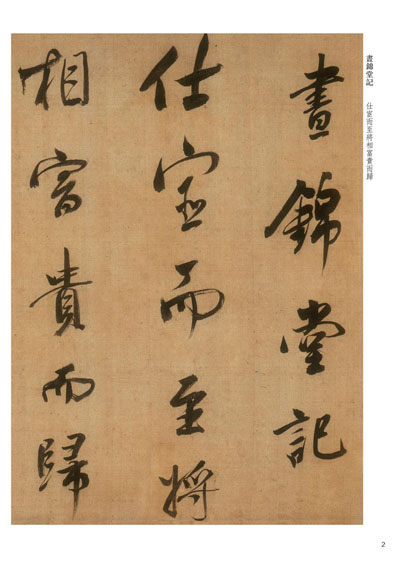 晝錦堂記 仕宦而至將相富貴而歸
晝錦堂記
仕宦而至將
相富貴而歸
2